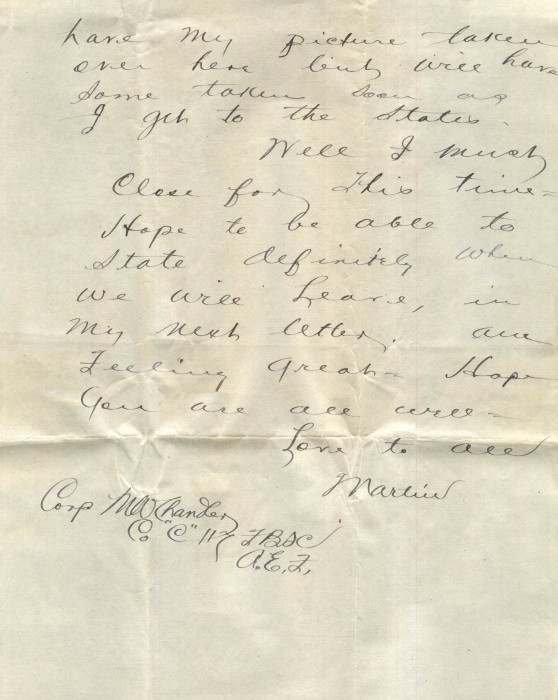 have my picture taken
over here but will have
some taken soon as
I get to the States.
Well I must
Close for this time=
Hope to be able to
State definitely when
we will Leave, in
my next letter. am
Feeling great= Hope
you are all well=
Love to all
Martin
Corp M W Chandler
Co "C" 117 F.B.S.C
A.E.F.